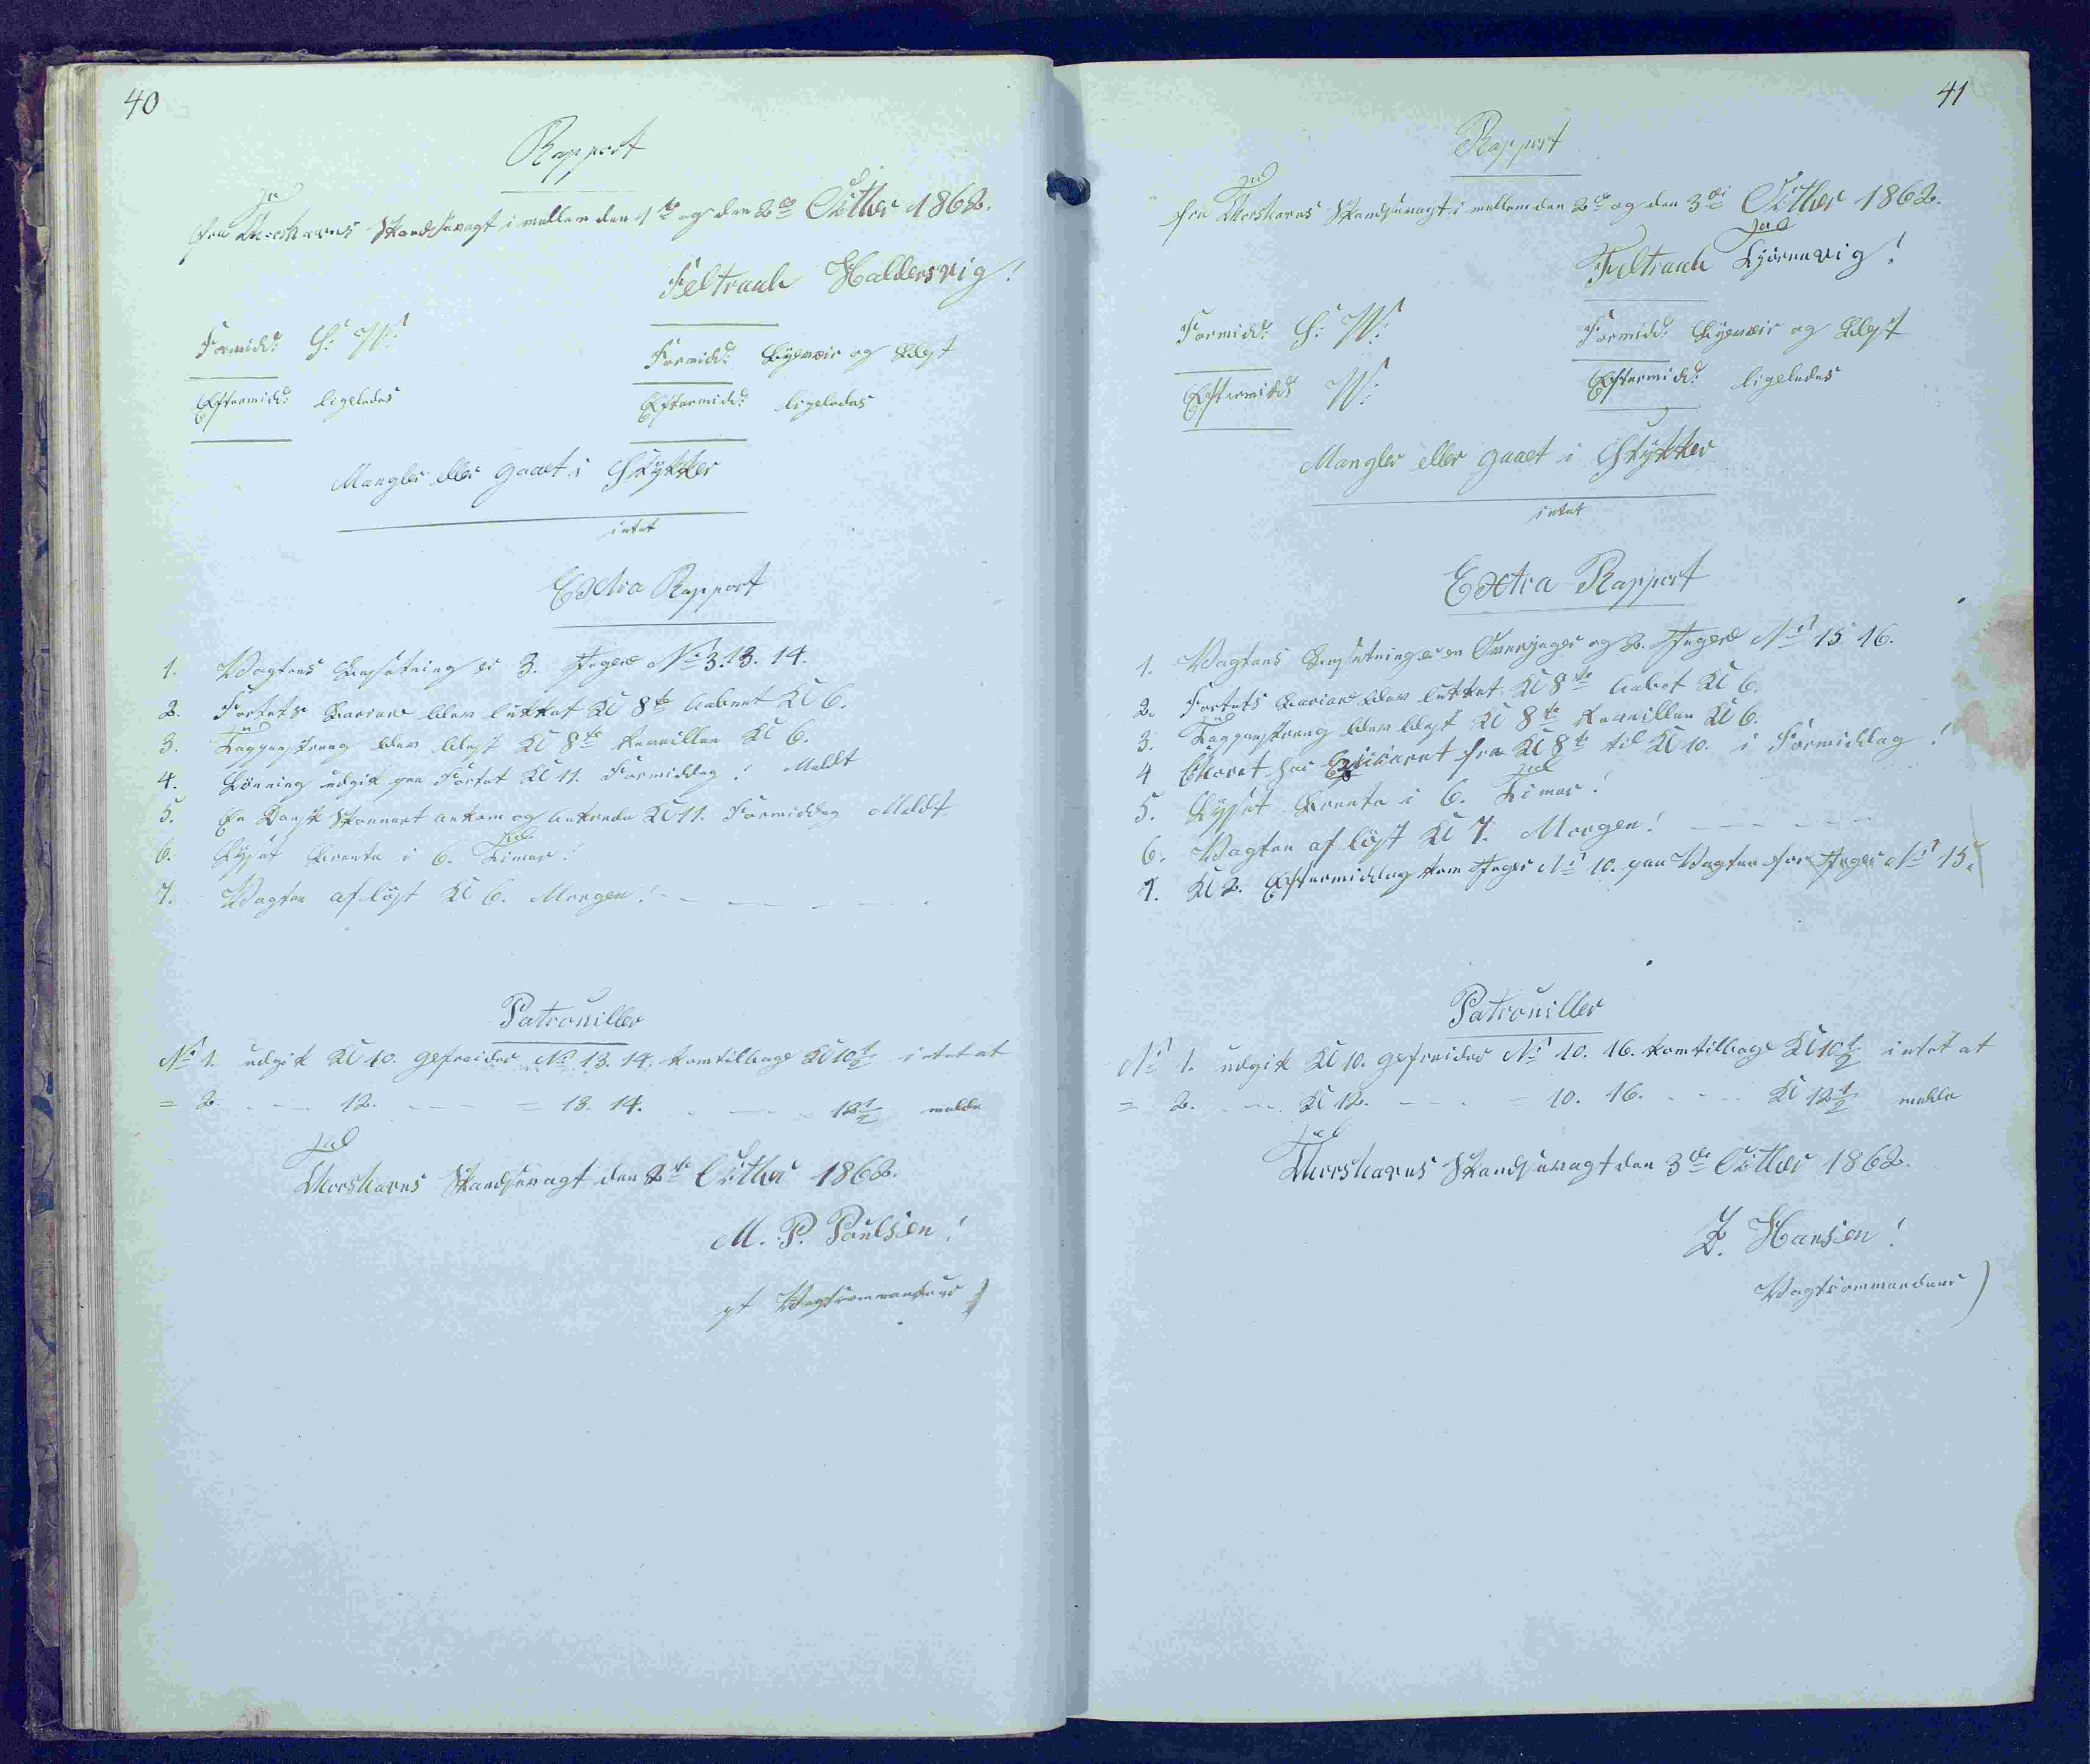 40
Rapport
fra Thorshavns Skandsevagt i mellem den 1ste og den 2de Octbr 1862.
Feltraab Haldersvig!
Formidd: S: W:
Formidd: Byeveir og Blæst
Eftermidd: ligeledes
Eftermidd: ligeledes
Mangler eller gaaet i Stykker
intet
Extra Rapport
1. Vagtens Besætning er 3. Jægere No 3. 13. 14.
2. Fortets Barriere blev lukket Kl 8te aabnet Kl 6.
3. Tappenstreng blev blæst Kl 8te Reveillen Kl 6.
4. Lønning udgik paa Fortet Kl 11. Formiddag! Meldt
5. En Dansk Skonnert ankom og ankrede Kl 11. Formiddag Meldt
6. Lyset brænte i 6. Timer!
7. Vagten afløst Kl 6. Morgen!
Patrouiller
No 1. udgik Kl 10. gefreider No 13. 14. kom tilbage Kl 10 1/2 intet at
= 2. - - - 12. - - - = 13. 14. - - - 12 1/2 melde
Thorshavns Skandsevagt den 2de Octbr 1862.
M. P. Poulsen!
pt Vagtcommandeur
41
Rapport
fra Thorshavns Skandsevagt i mellem den 2de og den 3die Octbr 1862.
Feltraab Tjørnevig!
Formidd: S: W:
Formidd: Byeveir og Blæst
Eftermidd: W:
Eftermidd: ligeledes
Mangler eller gaaet i Stykker
intet
Extra Rapport
1. Vagtens Besætning er en Overjæger og 2. Jægere No 15 16.
2. Fortets Bariere blev lukket Kl 8te aabet Kl 6.
3. Tappenstreng blev blæst Kl 8te Reveillen Kl 6.
4 Choret har Exiseret fra Kl 8te til Kl 10. i Formiddag!
5. Lyset brænte i 6. Timer!
6. Vagten afløst Kl 7. Morgen!
7. Kl 2. Eftermiddag kom Jæger No 10. paa Vagten for Jæger No 15.
Patrouiller
No 1. udgik Kl 10. gefreider No 10. 16. kom tilbage Kl 10 1/2 intet at
= 2. - - - Kl 12. - - - = 10. 16. - - - Kl 12 1/2 melde
Thorshavns Skandsevagt den 3die Octbr 1862.
Z. Hansen!
Vagtcommandeur